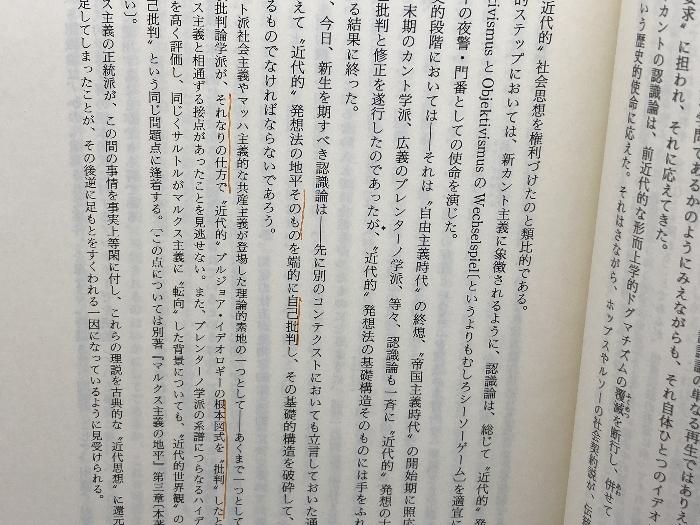 生間であるかのようにみえながらも、それ自体ひとつのイデオ
要求〟に担われ、それに応えてきた。
カントの認識論は、前近代的な形而上学的ドグマチズムの覆滅を断行し、併せて
いう歴史的使命に応えた。それはさながら、ホッブスやルソーの社会契約説が、伝統
近代的〟社会思想を権利づけたのと類比的である。
的ステップにおいては、新カント主義に象徴されるように、認識論は、総じて〝近代的〟発
tivismus と Objektivismus の Wechselspiel〔というよりもむしろシーソーゲーム〕を適宜に
の夜警・門番としての使命を演じた。
史的段階においては――それは〝自由主義時代〟の終熄、〝帝国主義時代〟の開始期に照応
末期のカント学派、広義のブレンターノ学派、等々、認識論も一斉に〝近代的〟発想の
批判と修正を遂行したのであったが、〝近代的〟発想法の基礎構造そのものには手をふれ
る結果に終った。
、今日、新生を期すべき認識論は――先に別のコンテクストにおいても立言しておいた通
えて〝近代的〟発想法の地平そのものを端的に自己批判し、その基礎的構造を破砕して、
るものでなければならないであろう。
ト派社会主義やマッハ主義的な共産主義が登場した理論的素地の一つとして――あくまで一つとして
批判論学派が、それなりの仕方で〝近代的〟ブルジョア・イデオロギーの根本図式を〝批判〟したと
ス主義と相通ずる接点があったことを見逃せない。また、ブレンターノ学派の系譜につらなるハイデ
を高く評価し、同じくサルトルがマルクス主義に〝転向〟した背景についても、〝近代的世界観〟の
己批判〟という同じ問題点に逢着する。〔この点については別著『マルクス主義の地平』第三章〔本著
い〕。
ス主義の正統派が、この間の事情を事実上等閑に付し、これらの理説を古典的な〝近代思想〟に還元
足してしまったことが、その後逆に足もとをすくわれる一因になっているように見受けられる。